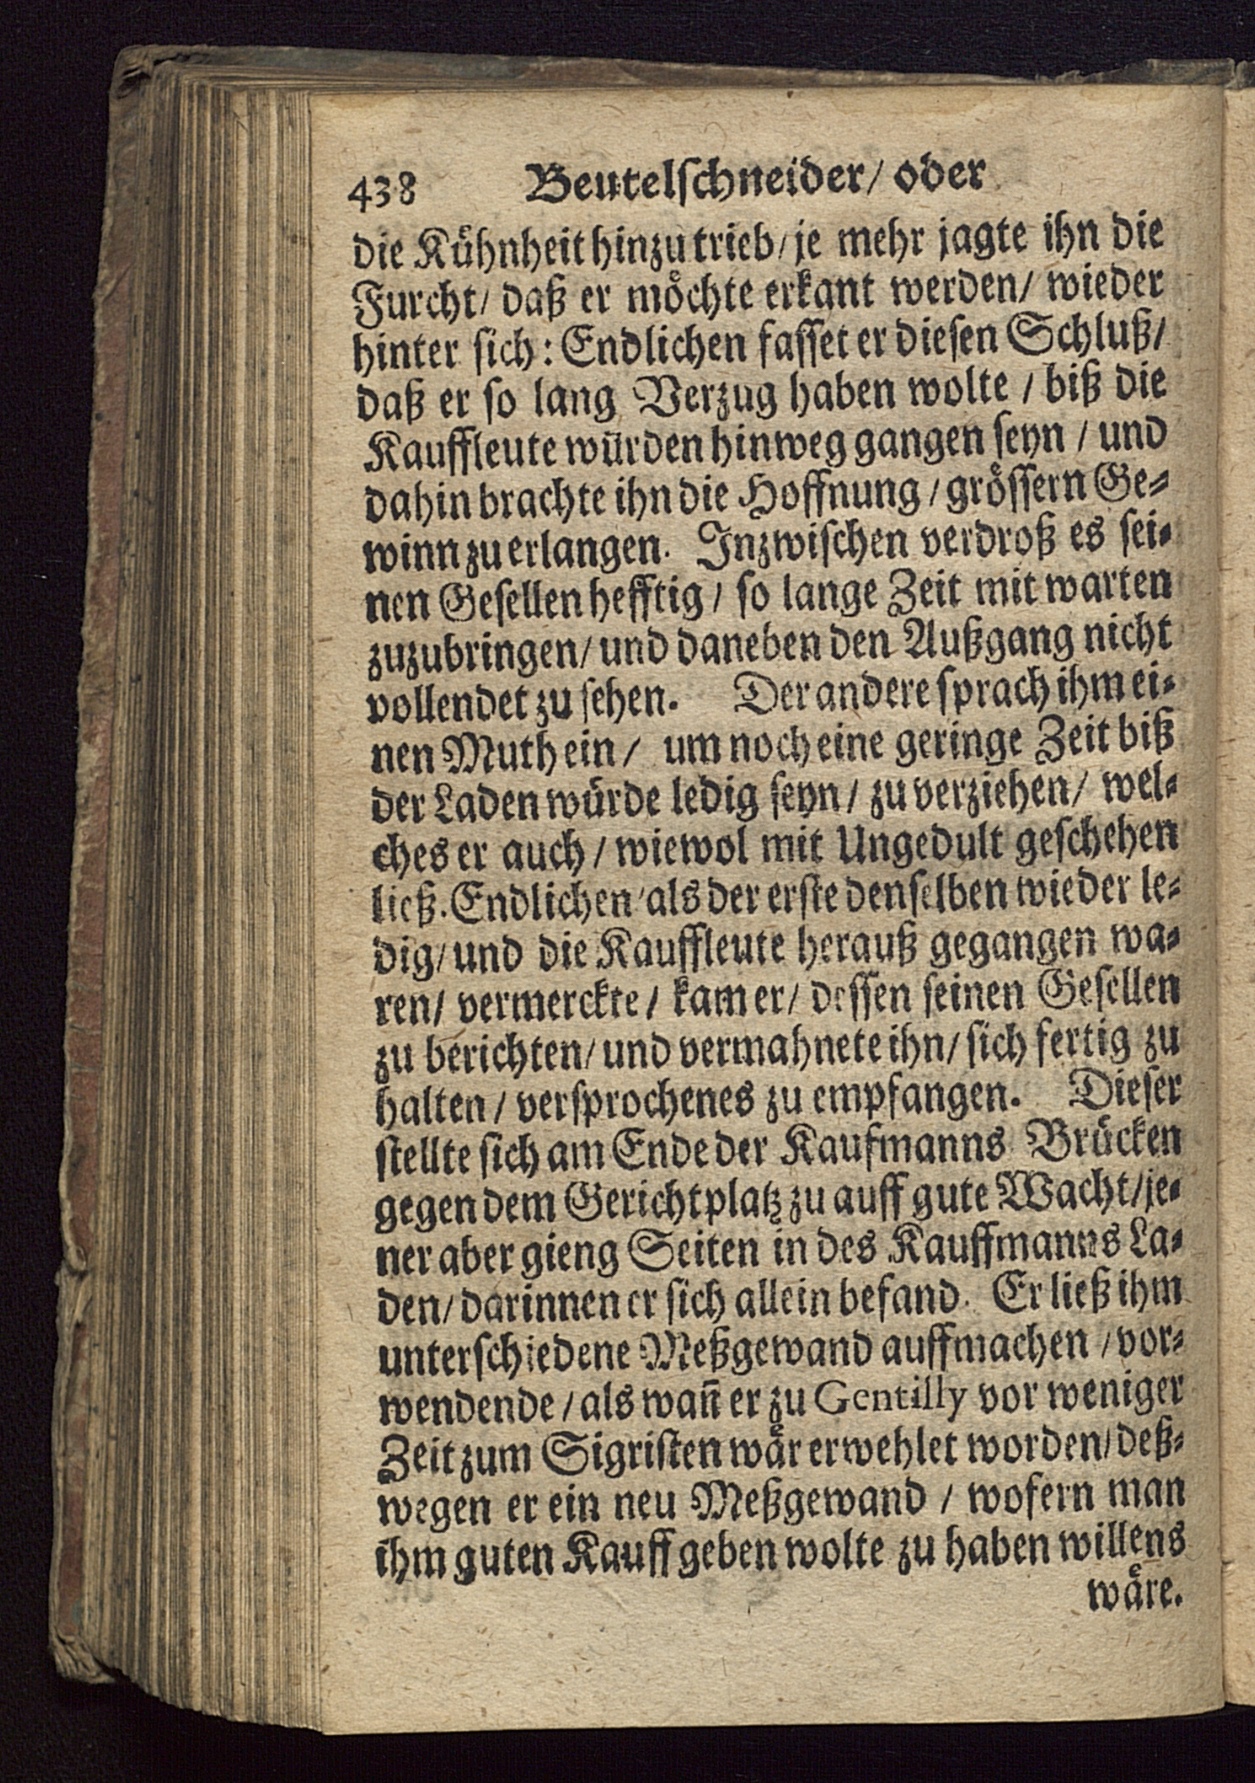 438 Beutelschneider/ oder
die Kühnheit hinzu trieb/ je mehr jagte ihn die
Furcht/ daß er möchte erkant werden/ wieder
hinter sich: Endlichen fasset er diesen Schluß/
daß er so lang Verzug haben wolte / biß die
Kauffleute würden hinweg gangen seyn / und
dahin brachte ihn die Hoffnung / grössern Ge-
winn zu erlangen. Inzwischen verdroß es sei-
nen Gesellen hefftig / so lange Zeit mit warten
zuzubringen/ und daneben den Außgang nicht
vollendet zu sehen. Der andere sprach ihm ei-
nen Muth ein / um noch eine geringe Zeit biß
der Laden würde ledig seyn / zu verziehen/ wel-
ches er auch / wiewol mit Ungedult geschehen
ließ. Endlichen/ als der erste denselben wieder le-
dig/ und die Kauffleute herauß gegangen wa-
ren/ vermerckte / kam er/ dessen seinen Gesellen
zu berichten/ und vermahnete ihn/ sich fertig zu
halten / versprochenes zu empfangen. Dieser
stellte sich am Ende der Kaufmanns Brücken
gegen dem Gerichtplatz zu auff gute Wacht/ je-
ner aber gieng Seiten in des Kauffmanns La-
den/ darinnen er sich allein befand. Er ließ ihm
unterschiedene Meßgewand auffmachen / vor-
wendende / als wañ er zu Gentilly vor weniger
Zeit zum Sigristen wär erwehlet worden/ deß-
wegen er ein neu Meßgewand / wofern man
ihm guten Kauff geben wolte zu haben willens
wäre.